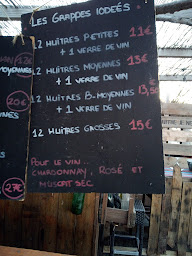 LES GRAPPES IODEÉS
12 HUÎTRES PETITES 11€
+ 1 VERRE DE VIN
12 HUÎTRES MOYENNES 13€
+ 1 VERRE DE VIN
12 HUÎTRES B-MOYENNES 13,50
+ 1 VERRE DE VIN
12 HUÎTRES GROSSES 15€
POUR LE VIN...
CHARDONNAY, ROSÉ ET
MUSCAT SEC
20€
27€